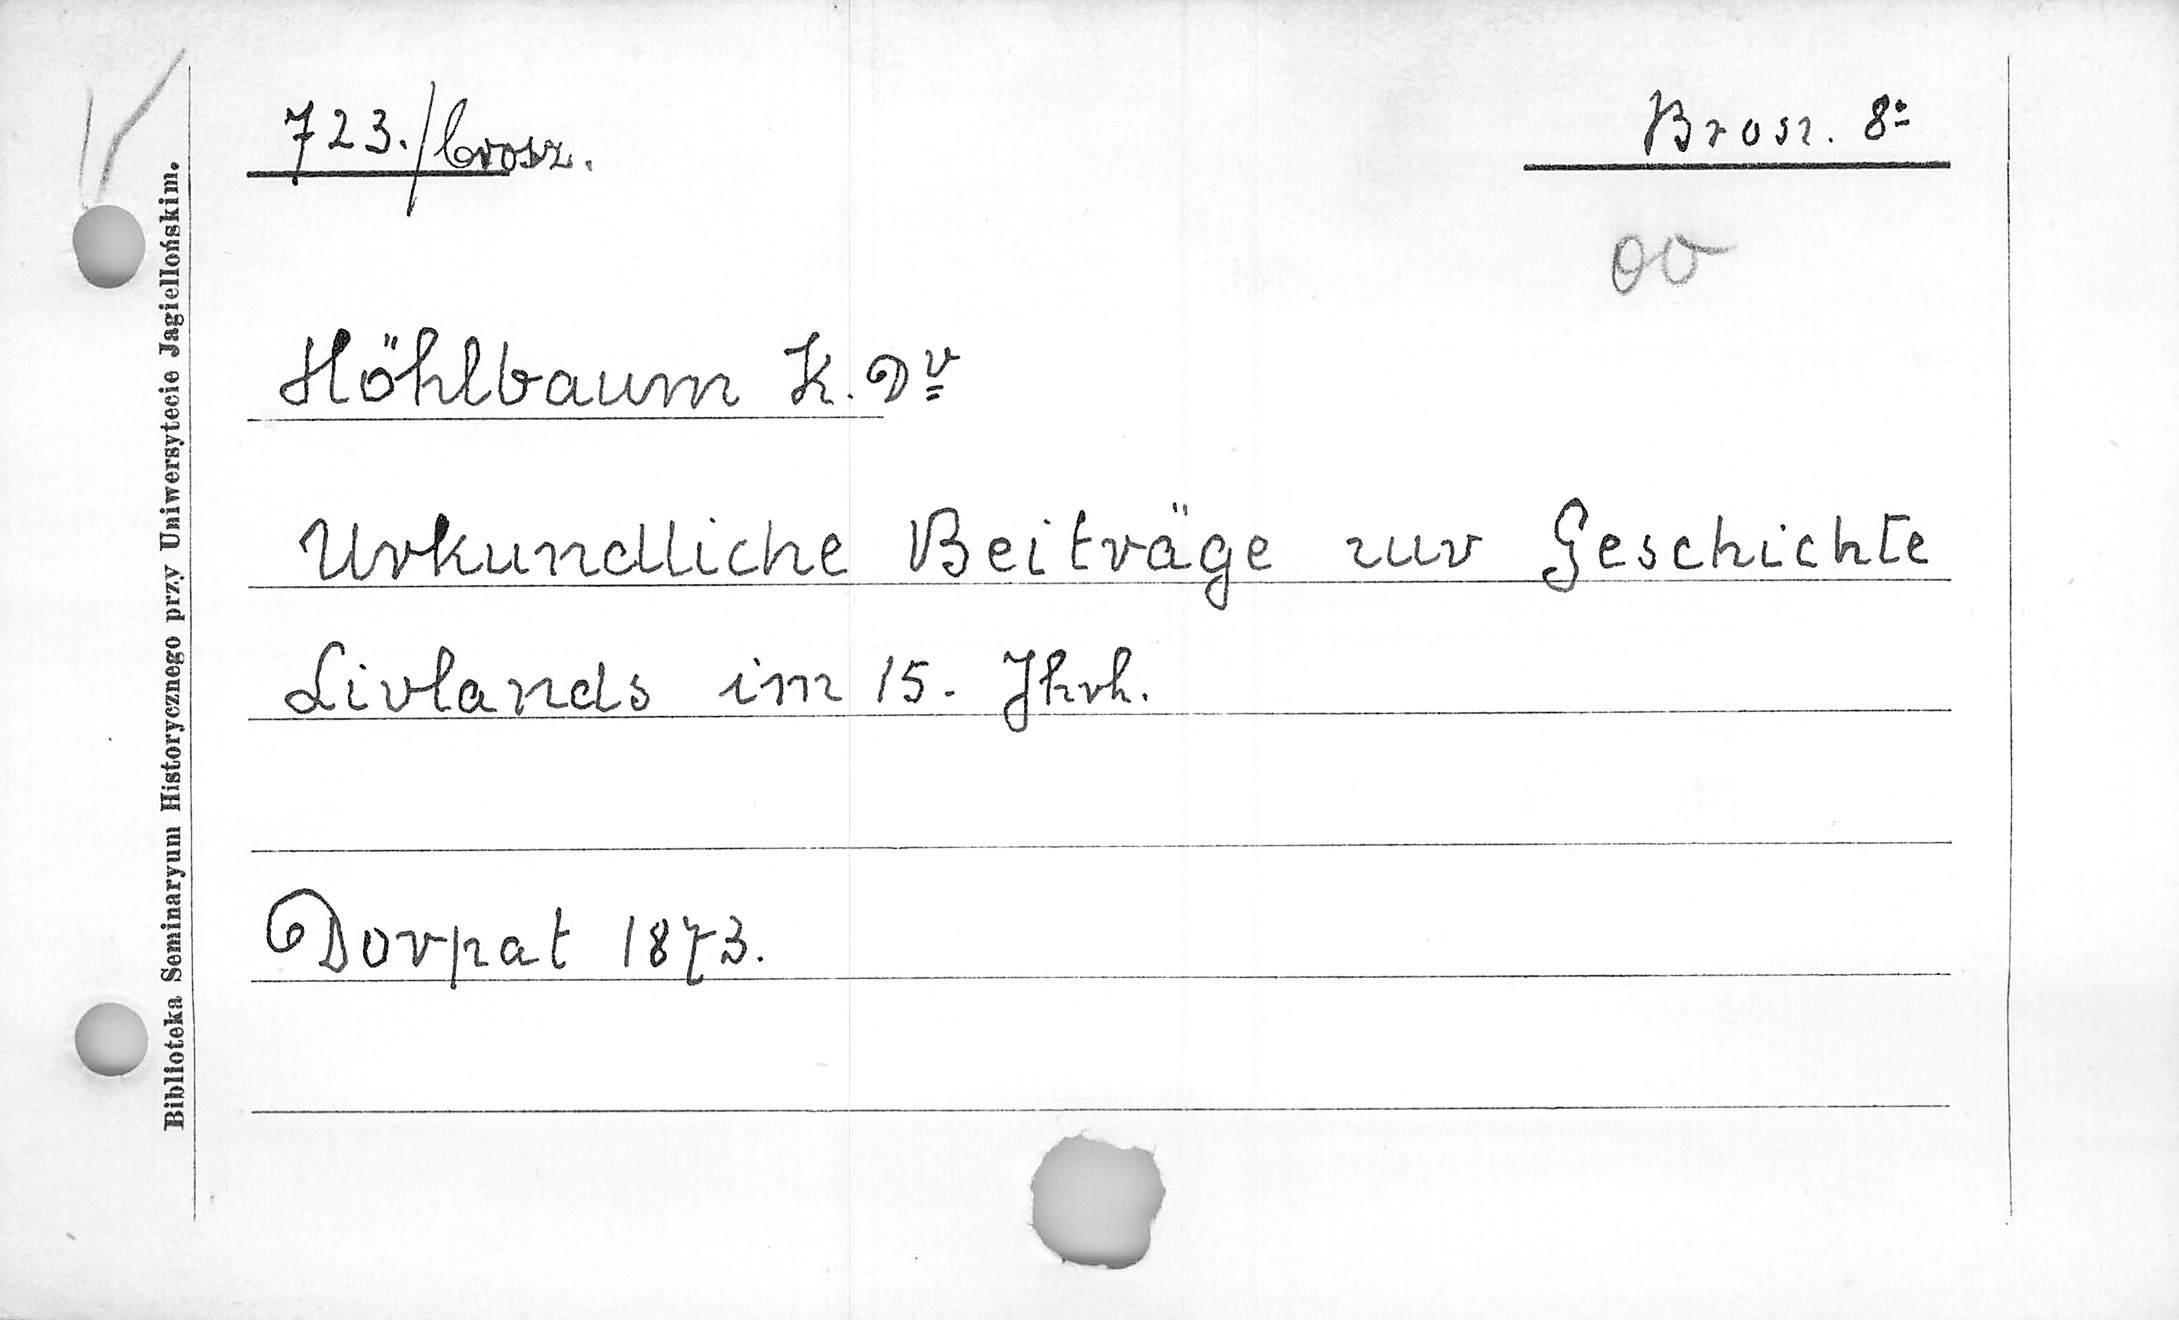 723./brosz.
Brosz. 8°
Höhlbaum K. Dr
Urkundliche Beiträge zur Geschichte
Livlands im 15. Jhrh.
Dorpat 1873.
Biblioteka Seminaryum Historycznego przy Uniwersytecie Jagiellońskim.